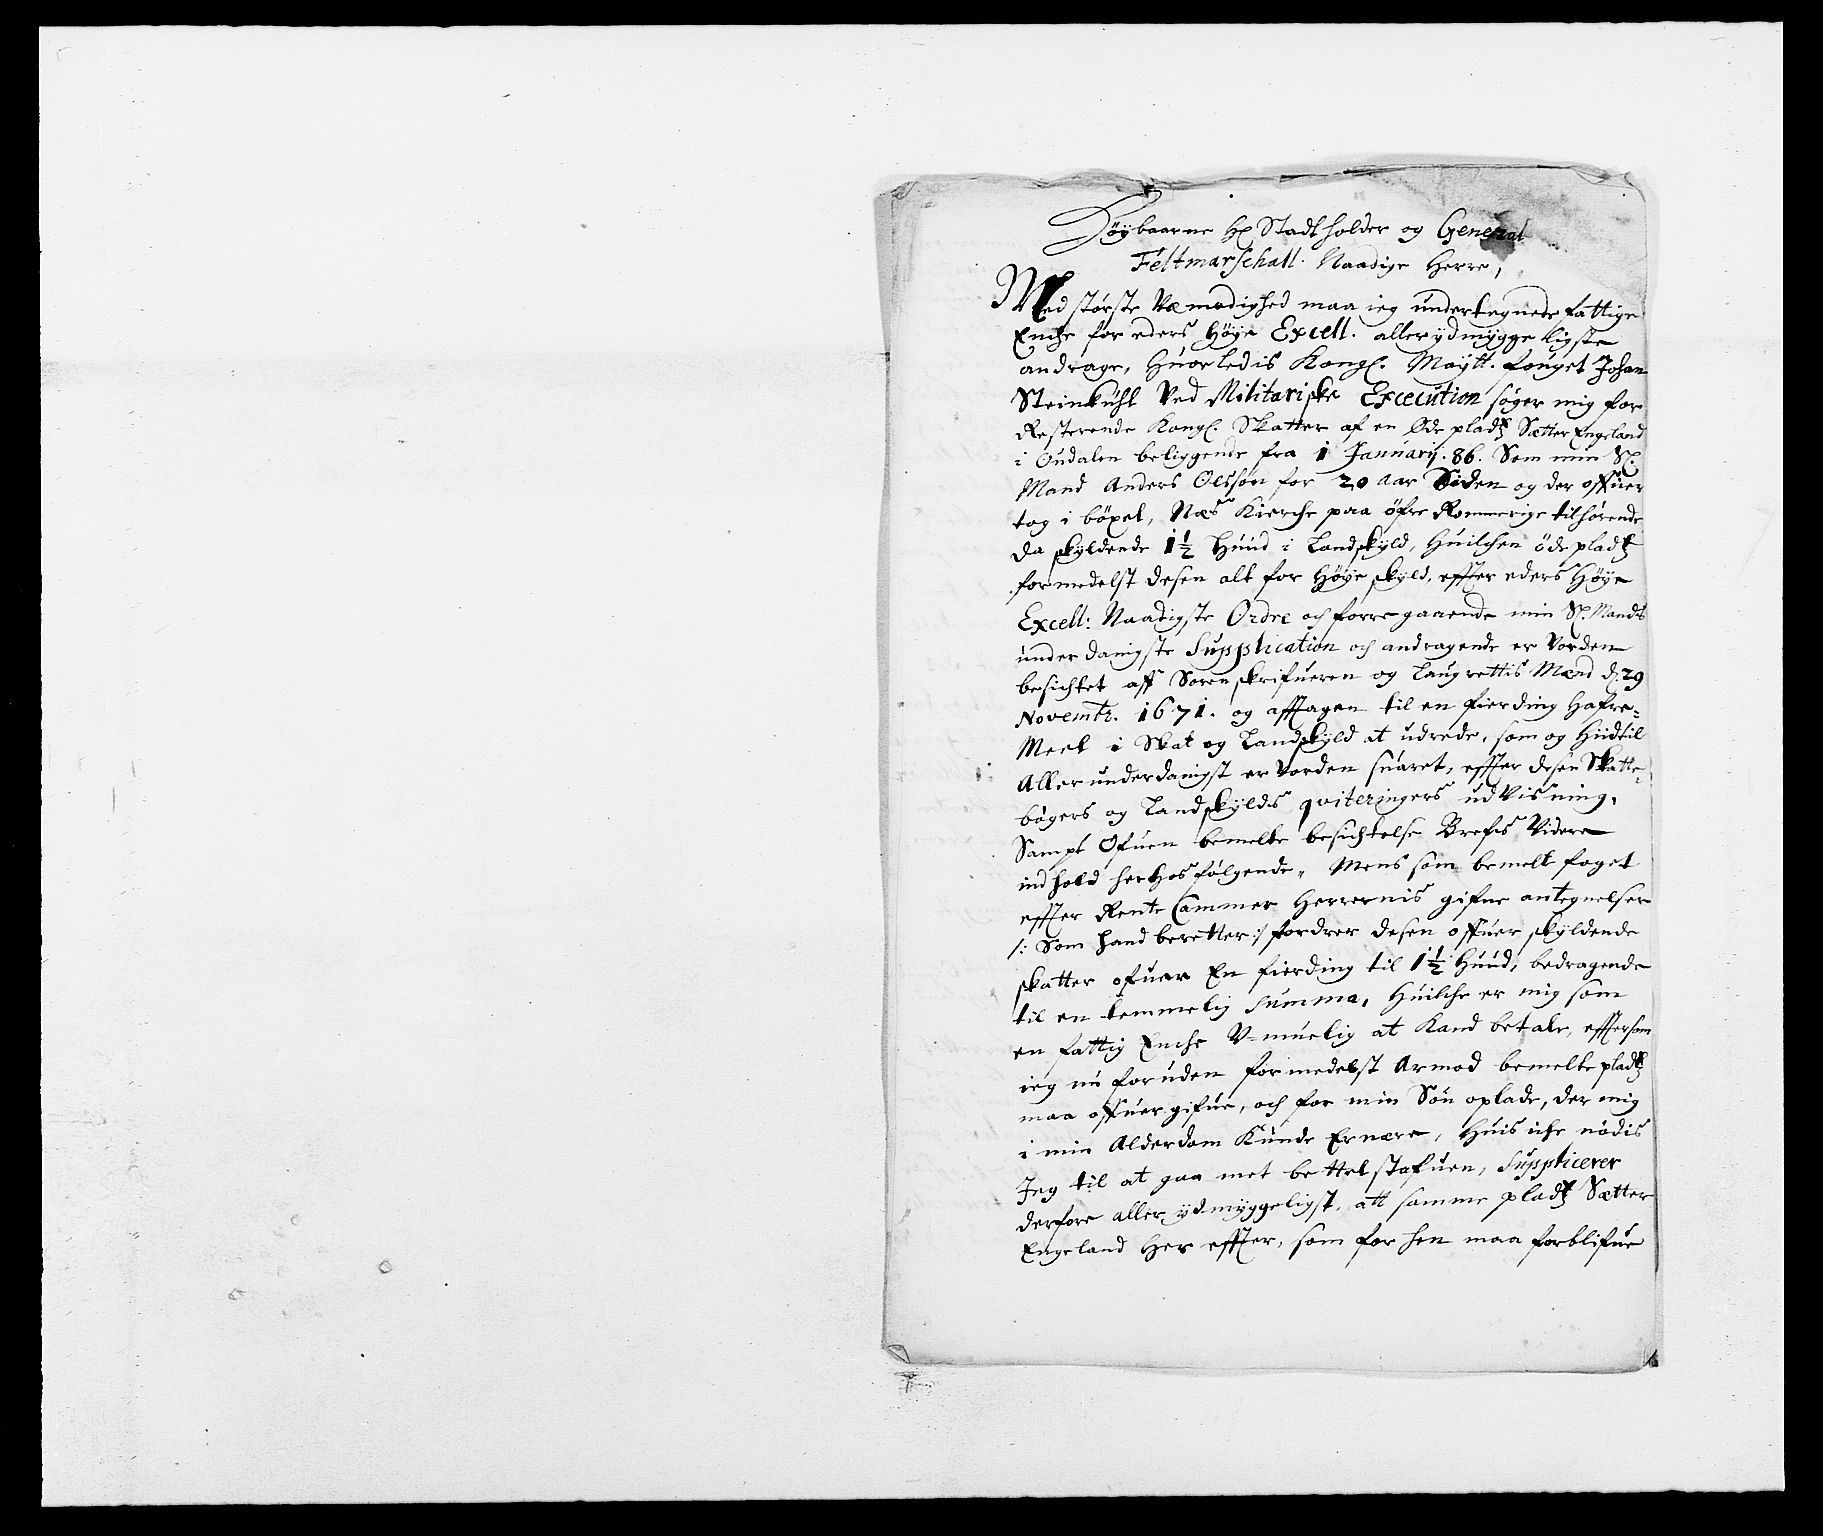 Høybaarne Hr Stadtholder og General
Feltmarschall. Naadige Herre,
Med største Vemodighed maa ieg undertegnede fattige
Enche for eders Høye Excell. allerydmyggeligste
andrage, Huorledis Kongl. Maytt. fouget Johan
Steinkuhl Ved Militariske Execution søger mig for
Resterende Kongl. Skatter af en Øde pladtz Sætter Engeland
i Oudalen beliggende fra 1 January. 86. Som min Sl.
Mand Anders Olssøn for 20 Aar Siden og der offuer
tog i böxel, Næs Kierche paa øfre Rommerige tilhørende
da skyldende 1½ Huud i Landskyld, Huilchen öde pladtz
formedelst desen alt for Høye skyld, effter eders Høye
Excell: Naadigste Ordre och forregaaende min Sl. Mandts
underdanigste Supplication och andragende er Vorden
besichtet aff Sorenskrifueren og Laugrettis Mænd d. 29
Novembr. 1671. og afftagen til en fierding Hafre-
Meel i Skat og Landskyld at udrede, som og Hiidtil
Allerunderdanigst er Vorden suaret, effter desen Skatte-
bøgers og Landskylds qviteringers udVisning,
Sampt Ofuen bemelte besichtelse Brefs Videre
indhold herHos følgende, Mens som bemelt foget
effter Rente Cammer Herrernis gifne antegnelser
/: Som hand beretter :/ fordrer desen offuer skyldende
skatter ofuer En fierding til 1½ Huud, bedragende
til en temmelig Summa, Huilche er mig som
en fattig Enche V-muelig at Kand betale, efftersom
ieg nu foruden formedelst Armod bemelte pladtz
maa offuergifue, och for min Søn oplade, der mig
i min Alderdom Kunde Ernære, Huis iche nødis
Jeg til at gaa met bettelstafuen, Supplicerer
derfore allerydmyggeligst, att samme pladtz Sætter
Engeland Her effter, som for hen maa forblifue